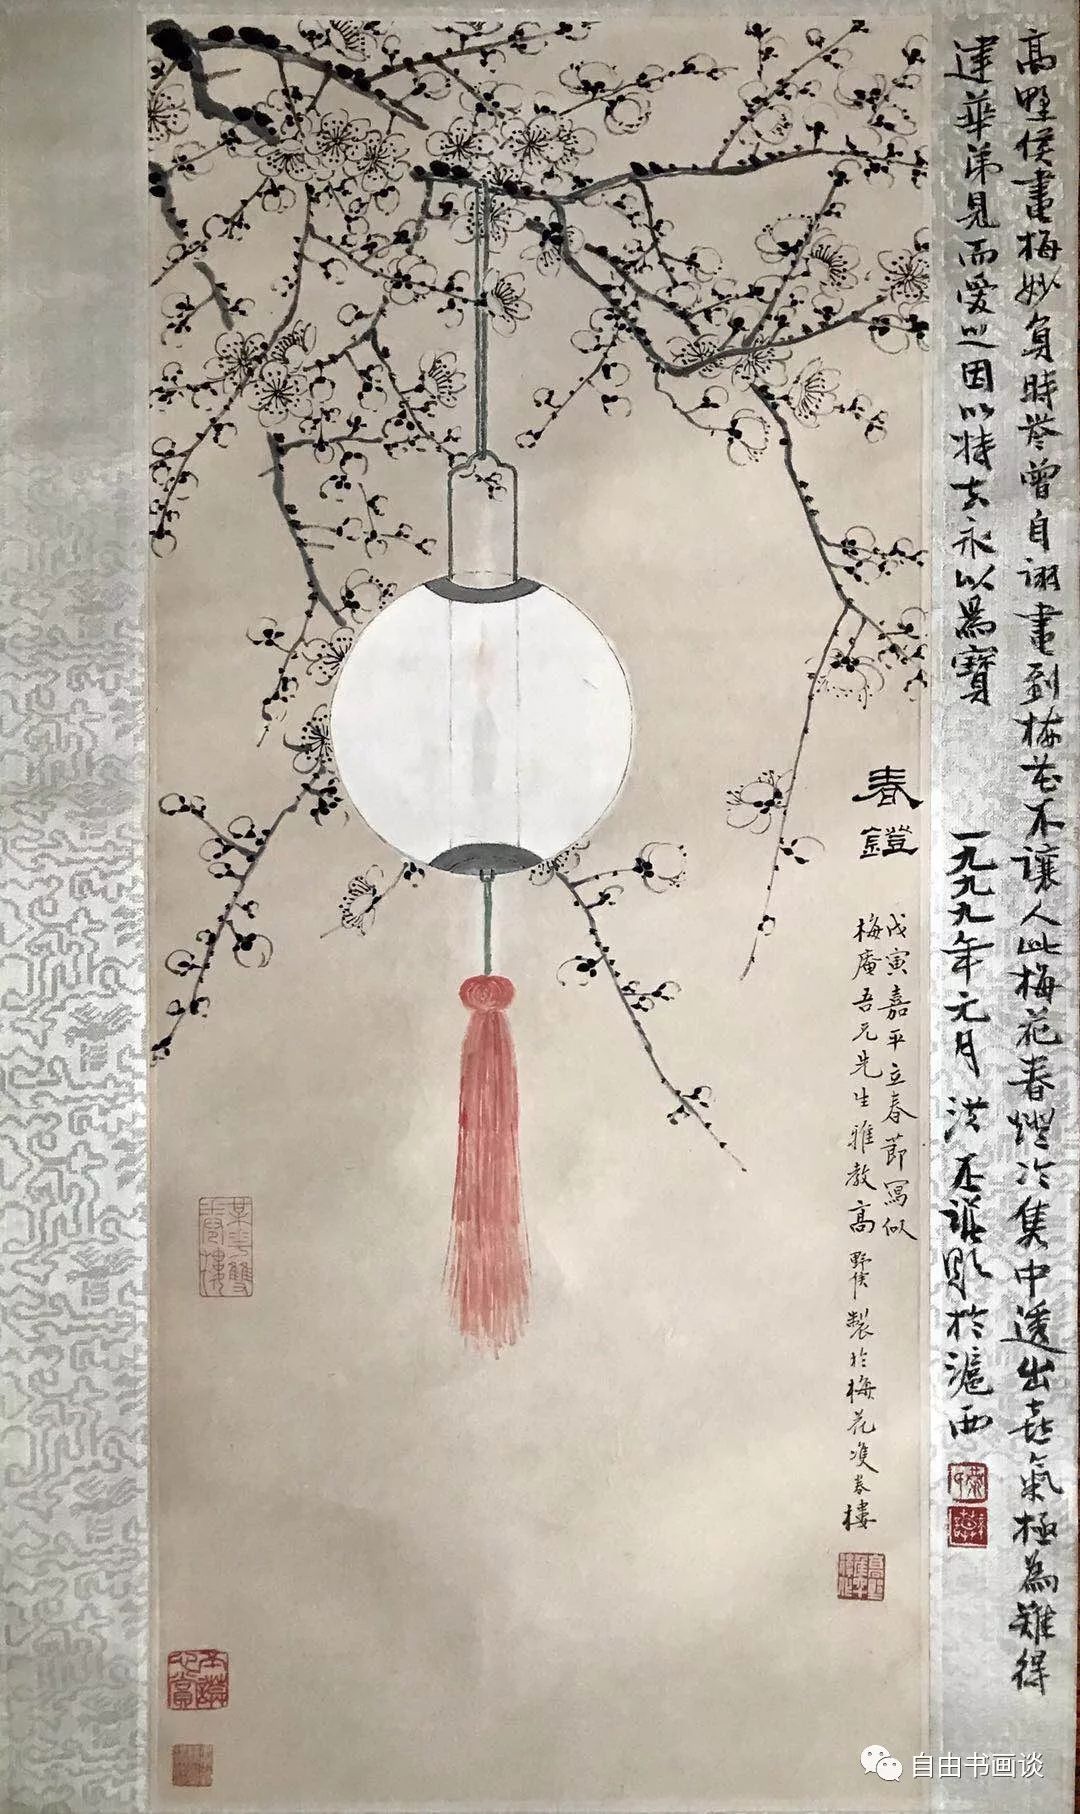 高野侯畫梅妙負時譽曾自詡畫到梅花不讓人此梅花春燈冷隽中透出喜氣極為難得
建華弟見而愛之因以持去永以爲寶 一九九九年元月 洪丕謨題於滬西
春鐙
戊寅嘉平立春節寫似
梅庵吾兄先生雅教高野侯製於梅花雙卷樓
丕謨心賞
自由书画谈